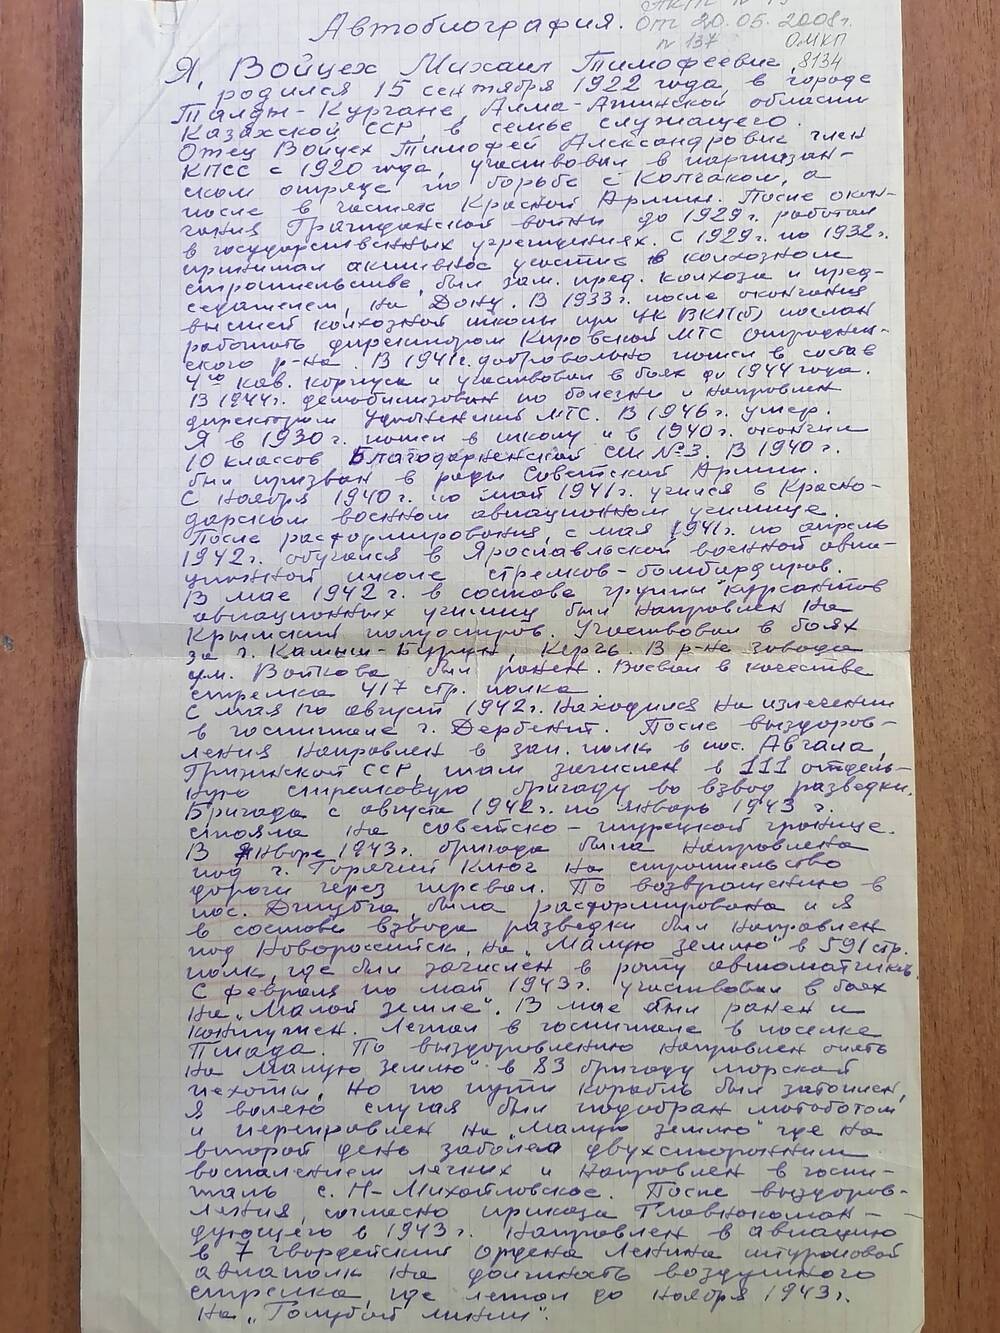 Автобиография.
От 20.06.2008г.
N 137 ОМКП
8134
Я, Войцех Михаил Тимофеевич,
родился 15 сентября 1922 года, в городе
Талды-Кургане, Алма-Атинской области
Казахской ССР, в семье служащего.
Отец Войцех Тимофей Александрович член
КПСС с 1920 года, участвовал в партизан-
ском отряде по борьбе с Колчаком, а
после в частях Красной Армии. После окон-
чания Гражданской войны до 1929г. работал
в государственных учреждениях. С 1929г. по 1932г.
принимал активное участие в колхозном
строительстве, был зам. пред. колхоза и пред-
седателем, на Дону. В 1933г. после окончания
высшей колхозной школы при ЦК ВКП(б) послан
работать директором Кировской МТС
ского р-на. В 1941г. добровольно пошел в состав
4го кав. корпуса и участвовал в боях до 1944 года.
В 1944г. демобилизован по болезни и направлен
директором МТС. В 1946г. умер.
Я в 1930г. пошел в школу и в 1940г. окончил
10 классов Благодарненской СШ №3. В 1940г.
был призван в ряды Советской Армии.
С ноября 1940г. по май 1941г. учился в Красно-
дарском военном авиационном училище.
После расформирования, с мая 1941г. по апрель
1942г. обучался в Ярославльской военной авиа-
ционной школе стрелков-бомбардиров.
В мае 1942г. в составе группы курсантов
авиационных училищ был направлен на
Крымский полуостров. Участвовал в боях
за г. Камыш-Бурун, Керчь. В р-не завода
им. Войкова был ранен. Воевал в качестве
стрелка 417 стр. полка.
С мая по август 1942г. находился на излечении
в госпитале г. Дербент. После выздоров-
ления направлен в зап. полк в пос. Авчала,
Грузинской ССР, там зачислен в 111 отдель-
ную стрелковую бригаду во взвод разведки.
Бригада с августа 1942г. по январь 1943г.
стояла на советско-турецкой границе.
В январе 1943г. бригада была направлена
под г. Горячий Ключ на строительство
дороги через перевал. По возвращению в
пос. Джубга, была расформирована и я
в составе взвода разведки был направлен
под Новороссийск, на „Малую землю" в 591 стр.
полк, где был зачислен в роту автоматчиков.
С февраля по май 1943г. участвовал в боях
на „Малой земле". В мае был ранен и
контужен. Лежал в госпитале в поселке
Пшада. По выздоровлению направлен опять
на „Малую землю" в 83 бригаду морской
пехоты, но по пути корабль был затоплен,
Я волею случая был подобран мотоботом
и переправлен на „Малую землю" где на
второй день заболел двухсторонним
воспалением легких и направлен в госпи-
таль с. Н-Михайловское. После выздоров-
ления, согласно приказа Главнокоман-
дующего в 1943г. направлен в авиацию
в 7 гвардейский ордена Ленина штурмовой
авиаполк на должность воздушного
стрелка, где летал до ноября 1943г.
на „Голубой линии".